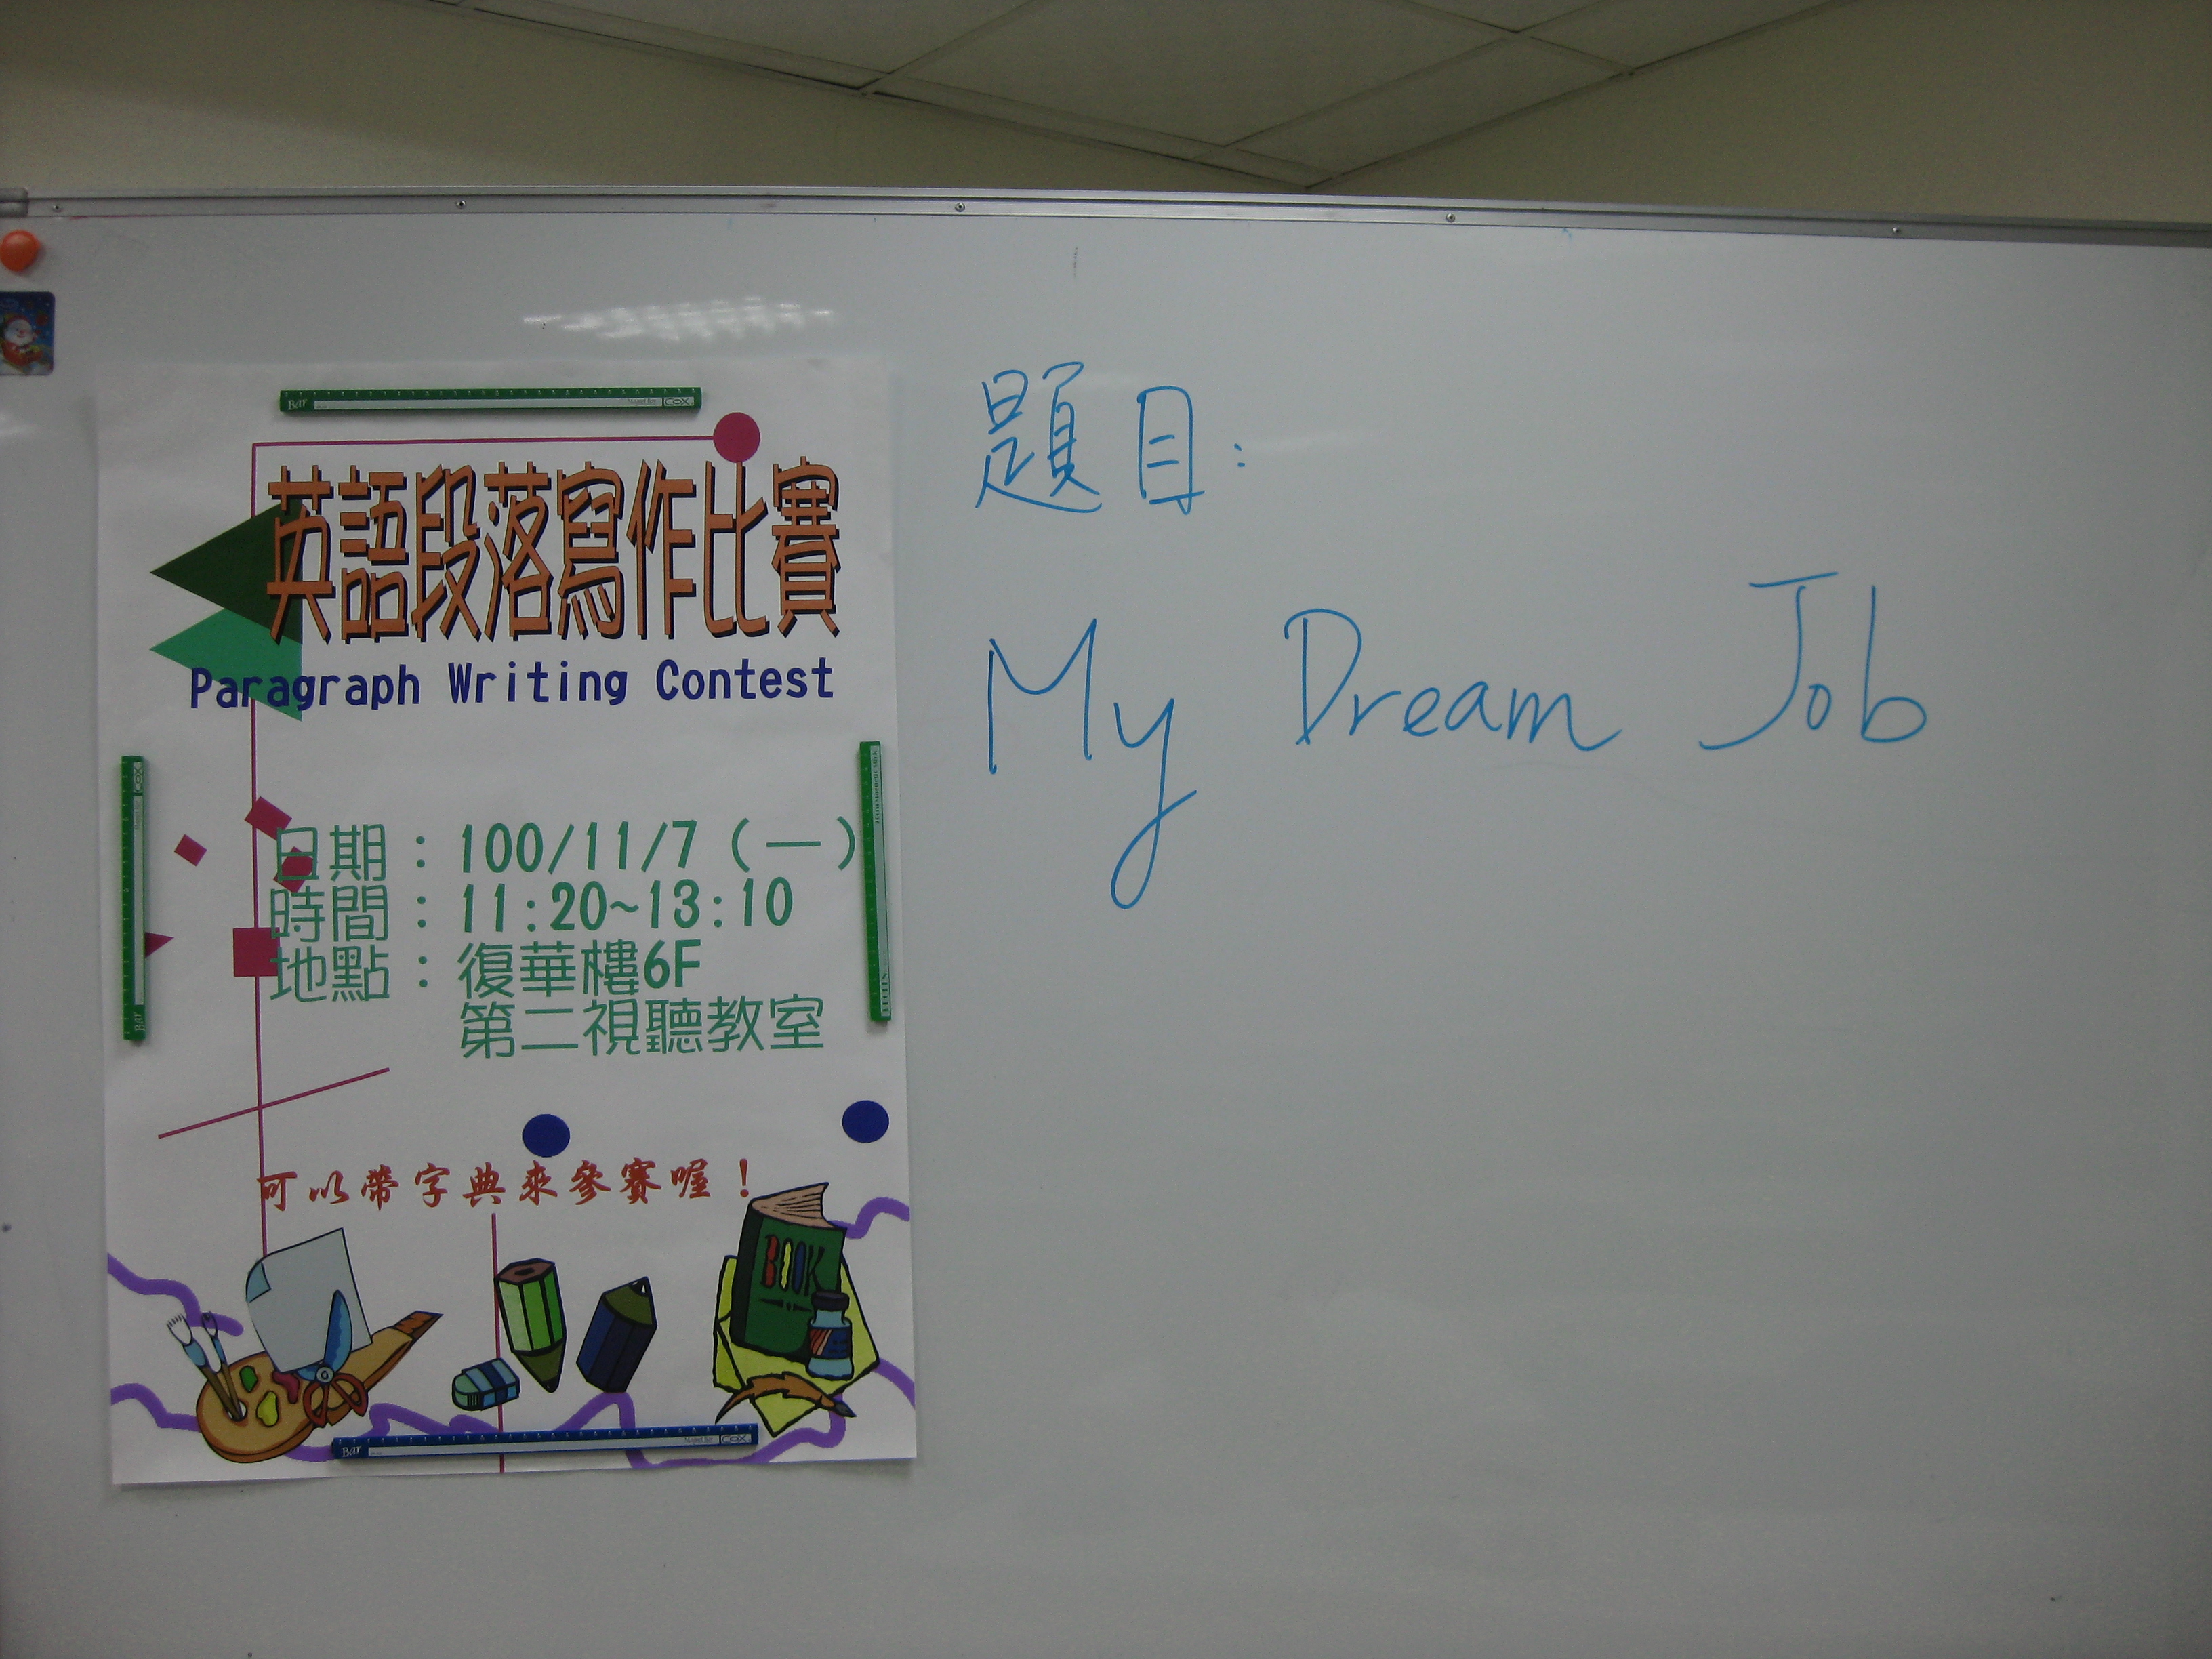 英語段落寫作比賽
Paragraph Writing Contest
日期：100/11/7（一）
時間：11:20~13:10
地點：復華樓6F
第二視聽教室
可以帶字典來參賽喔！
BOOK
題目：
My Dream Job
Bar
COX
Bar
COX
Bar
COX